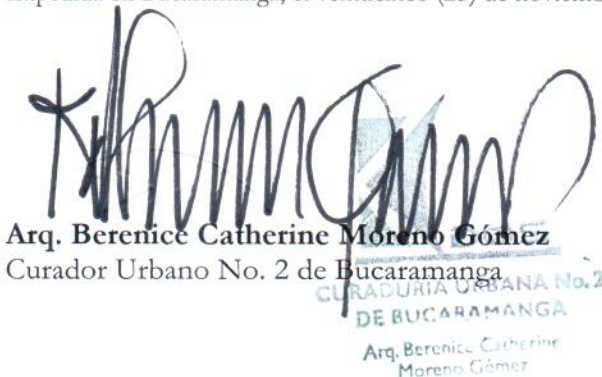 Arq. Berenice Catherine Moreno Gómez
Curador Urbano No. 2 de Bucaramanga
CURADURIA URBANA No. 2
DE BUCARAMANGA
Arq. Berenice Catherine
Moreno Gómez